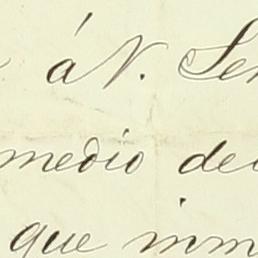 á V. Se
medio de
que inm